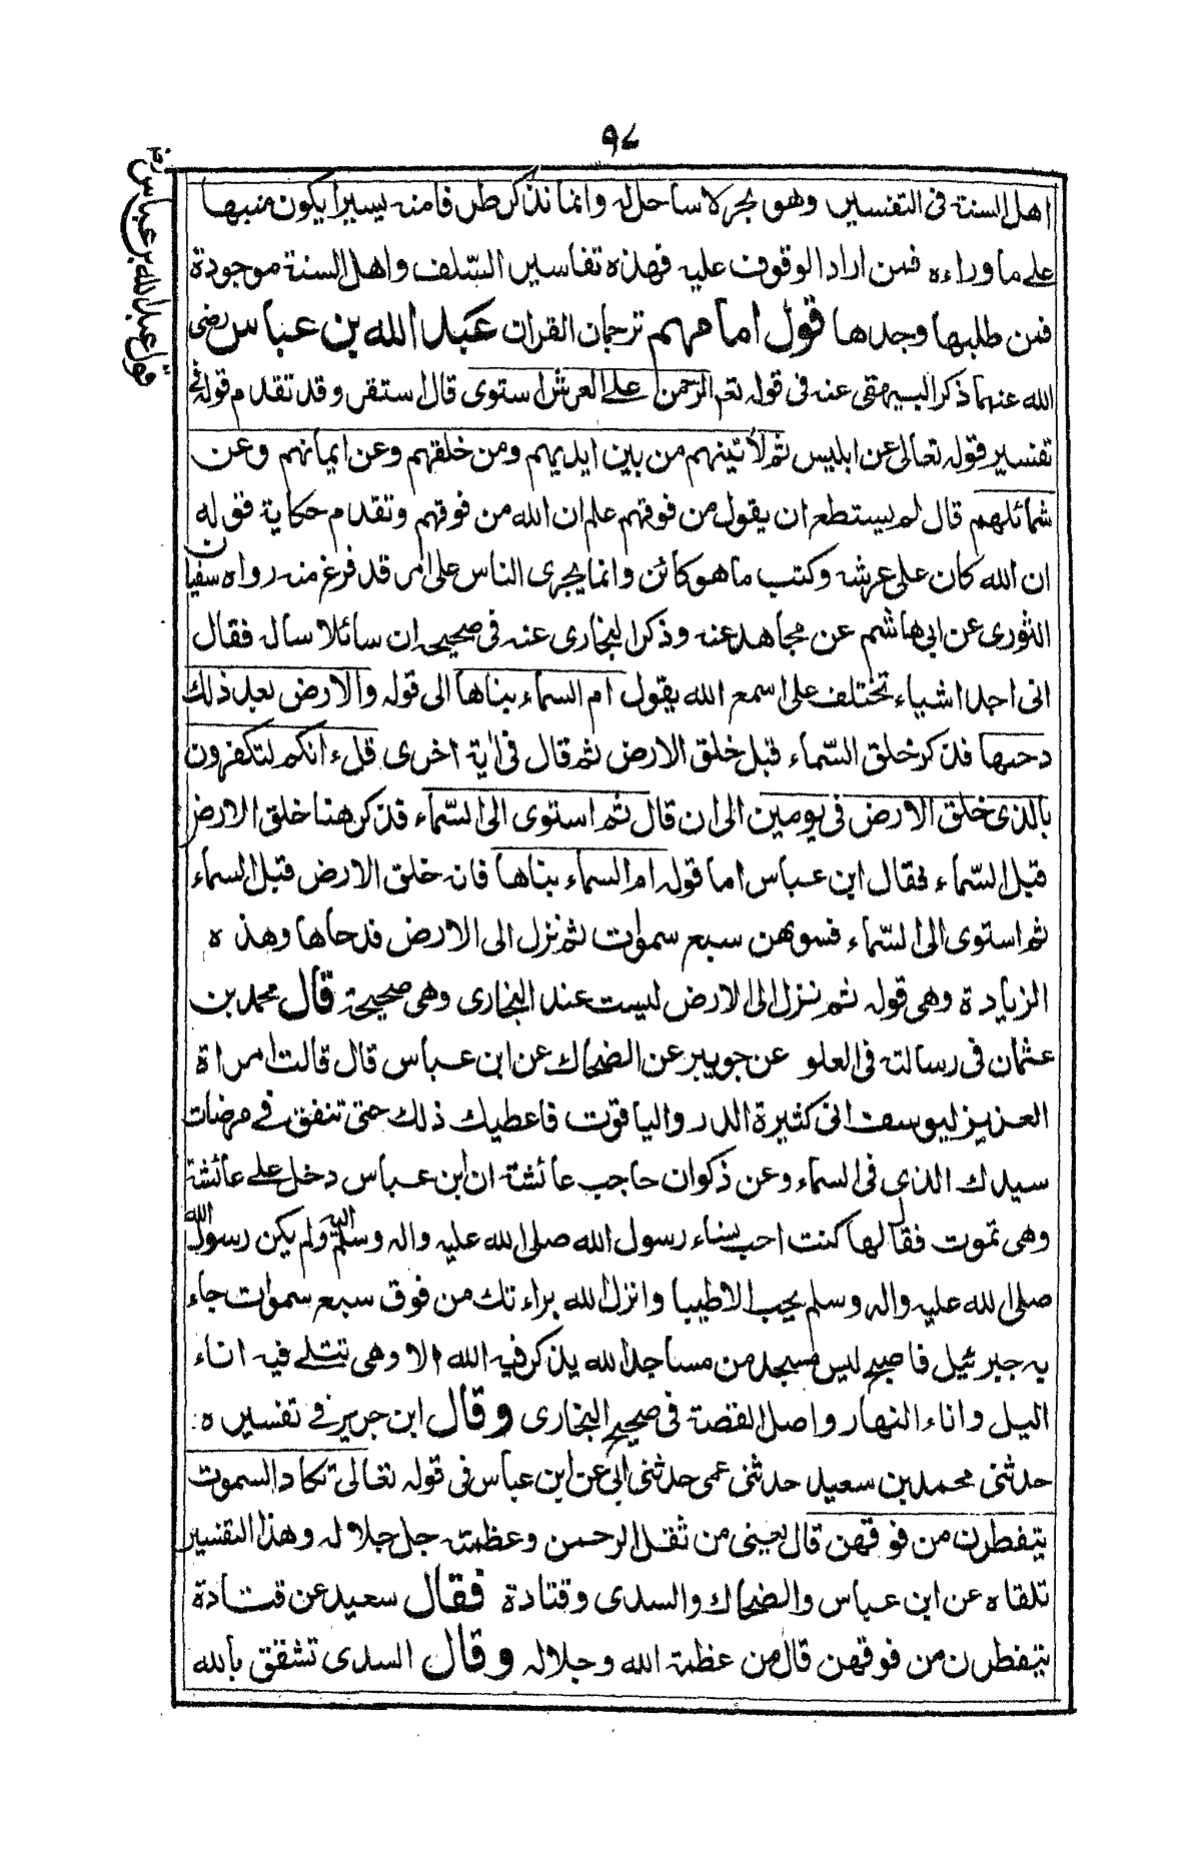 ٩٧
اهل السنة فى التفسير وهو بحر لا ساحل له وانما نذكر طرفا منه يسيرا يكون منبها
على ما وراءه فمن اراد الوقوف عليه فهذه تفاسير السّلف واهل السنة موجودة
فمن طلبها وجدها قول امامهم ترجمان القران عبد الله بن عباس رضى
الله عنهما ذكر البيهقى عنه فى قوله تعم الرحمن على العرش استوى قال استقر وقد تقدم قوله فى
تفسير قوله تعالى عن ابليس ثم لأتينهم من بين ايديهم ومن خلفهم وعن ايمانهم وعن
شمائلهم قال لم يستطع ان يقول من فوقهم علم ان الله من فوقهم وتقدم حكاية قوله
ان الله كان على عرشه وكتب ما هو كائن وانما يجرى الناس على امر قد فرغ منه رواه سفيان
الثورى عن ابى هاشم عن مجاهد عنه وذكر البخارى عنه فى صحيحه ان سائلا سال فقال
انى اجد اشياء تختلف على اسمع الله يقول ام السماء بناها الى قوله والارض بعد ذلك
دحىها فذكر خلق السّماء قبل خلق الارض ثم قال فى اية اخرى قل ءانكم لتكفرون
بالذى خلق الارض فى يومين الى ان قال ثم استوى الى السّماء فذكر هنا خلق الارض
قبل السّماء فقال ابن عباس اما قوله ام السماء بناها فانه خلق الارض قبل السماء
ثم استوى الى السّماء فسوىهن سبع سموات ثم نزل الى الارض فدحاها وهذه
الزيادة وهى قوله ثم نزل الى الارض ليست عند البخارى وهى صحيحة قال محمد بن
عثمان فى رسالته فى العلو عن جويبر عن الضحاك عن ابن عباس قال قالت امراة
العزيز ليوسف انى كثيرة الدر والياقوت فاعطيك ذلك حتى تنفق فى مرضات
سيدك الذى فى السماء وعن ذكوان حاجب عائشة ان ابن عباس دخل على عائشة
وهى تموت فقال لها كنت احب نساء رسول الله صلى الله عليه واله وسلم اليه ولم يكن رسول الله
صلى الله عليه واله وسلم يحب الا طيبا وانزل الله براءتك من فوق سبع سموات جاء
به جبرئيل فاصبح ليس مسجد من مساجد الله يذكر فيه الله الا وهى تتلى فيه اناء
اليل واناء النهار واصل القصة فى صحيح البخارى وقال ابن جرير فى تفسيره
حدثنى محمد بن سعيد حدثنى عمى حدثنى ابى عن ابن عباس فى قوله تعالى تكاد السموت
يتفطرن من فوقهن قال يعنى من ثقل الرحمن وعظمته جل جلاله وهذا التفسير
تلقاه عن ابن عباس والضحاك والسدى وقتادة فقال سعيد عن قتادة
يتفطرن من فوقهن قال من عظمة الله وجلاله وقال السدى تشقق بالله
قول عبد الله بن عباس رض